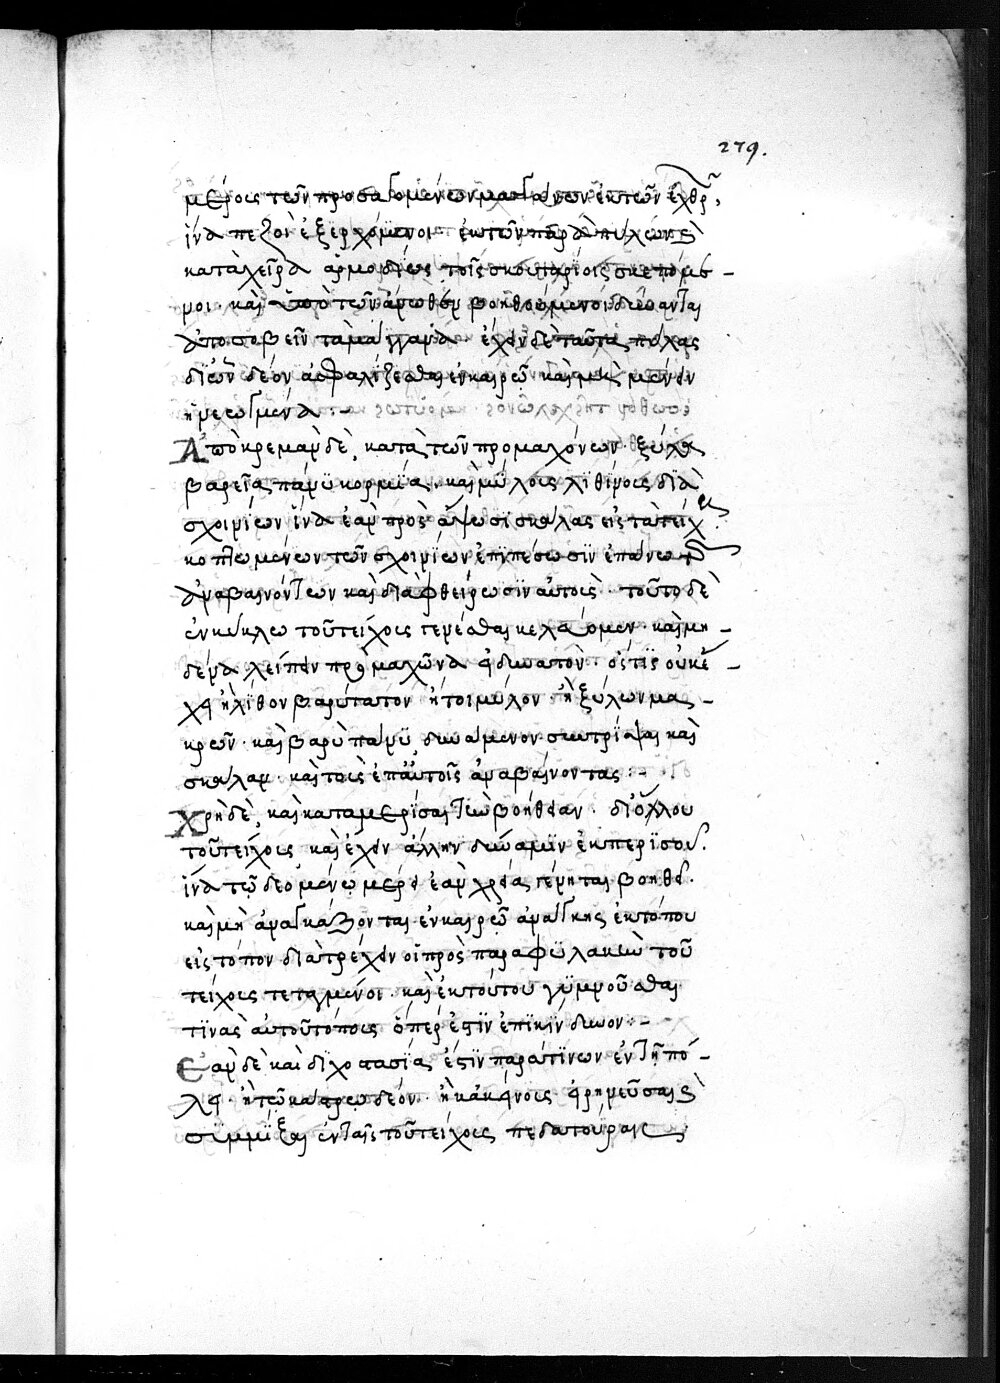 279.
μέρους τῶν προσαγομένων μαγγάνων ἐκ τῶν ἐχθρῶν,
ἵνα πεζοὶ ἐξερχόμενοι ἐκ τῶν παραπυλίων καὶ
κατὰ χεῖρα ἁρμοδίως τοῖς σκουταρίοις σκεπόμε-
μοι καὶ ὑπὸ τῶν ἄνωθεν βοηθούμενοι δύνανται
ἀποσοβεῖν τὰ μάγγανα. ἔχειν δὲ ταῦτα πύλας
δι' ὧν δέον ἀσφαλίζεσθαι ἐν καιρῷ καὶ μὴ μένειν
ἠνεῳγμένα.
Ἀποκρεμᾶν δὲ, κατὰ τῶν προμαχόνων ξύλα
βαρείας πάνυ κορμίας. καὶ μύλους λιθίνους διὰ
σχοινίων ἵνα ἐὰν προσάξωσι σκάλας εἰς τὰ τείχη
κοπτωμένων τῶν σχοινίων ἐπιπέσωσιν ἐπάνω τῶν
ἀναβαινόντων καὶ διαφθείρωσιν αὐτούς. τοῦτο δὲ
ἐν κύκλω τοῦ τείχους γενέσθαι κελεύομεν. καὶ μη-
δένα λείπειν προμαχῶνα εἰ δυνατόν. ὅστις οὐκ ἔ-
χει ἢ λίθον βαρύτατον ἤτοι μύλον. ἢ ξύλων μα-
κρῶν. καὶ βαρὺ πάνυ, δυνάμενον συντρίψαι καὶ
σκάλαν. καὶ τοὺς ἐπ' αὐτοῖς ἀναβαίνοντας:-
Χρὴ δὲ, καὶ καταμερίσαι τὴν βοήθειαν. δι' ὅλλου
τοῦ τείχους καὶ ἔχειν ἄλλην δύναμιν ἐκ περισσοῦ.
ἵνα τῷ δεομένῳ μέρει ἐὰν χρεία γένηται βοηθεῖ.
καὶ μὴ ἀναγκάζονται ἐν καιρῷ ἀνάγκης ἐκ τόπου
εἰς τόπον διατρέχειν οἱ πρὸς παραφυλακὴν τοῦ
τείχους τεταγμένοι. καὶ ἐκ τούτου γυμνοῦσθαι
τινὰς αὐτοῦ τόπους ὅπερ ἐστὶν ἐπικίνδυνον:-
Ἐὰν δὲ καὶ διχοστασία ἐστὶν παρά τινων ἐν τῇ πό-
λει. ἢ τῷ καιρῷ δέον. ἢ κἀκείνους εἰρηνεῦσαι καὶ
συμμίξαι ἐν ταῖς τοῦ τείχους πεδατούραις